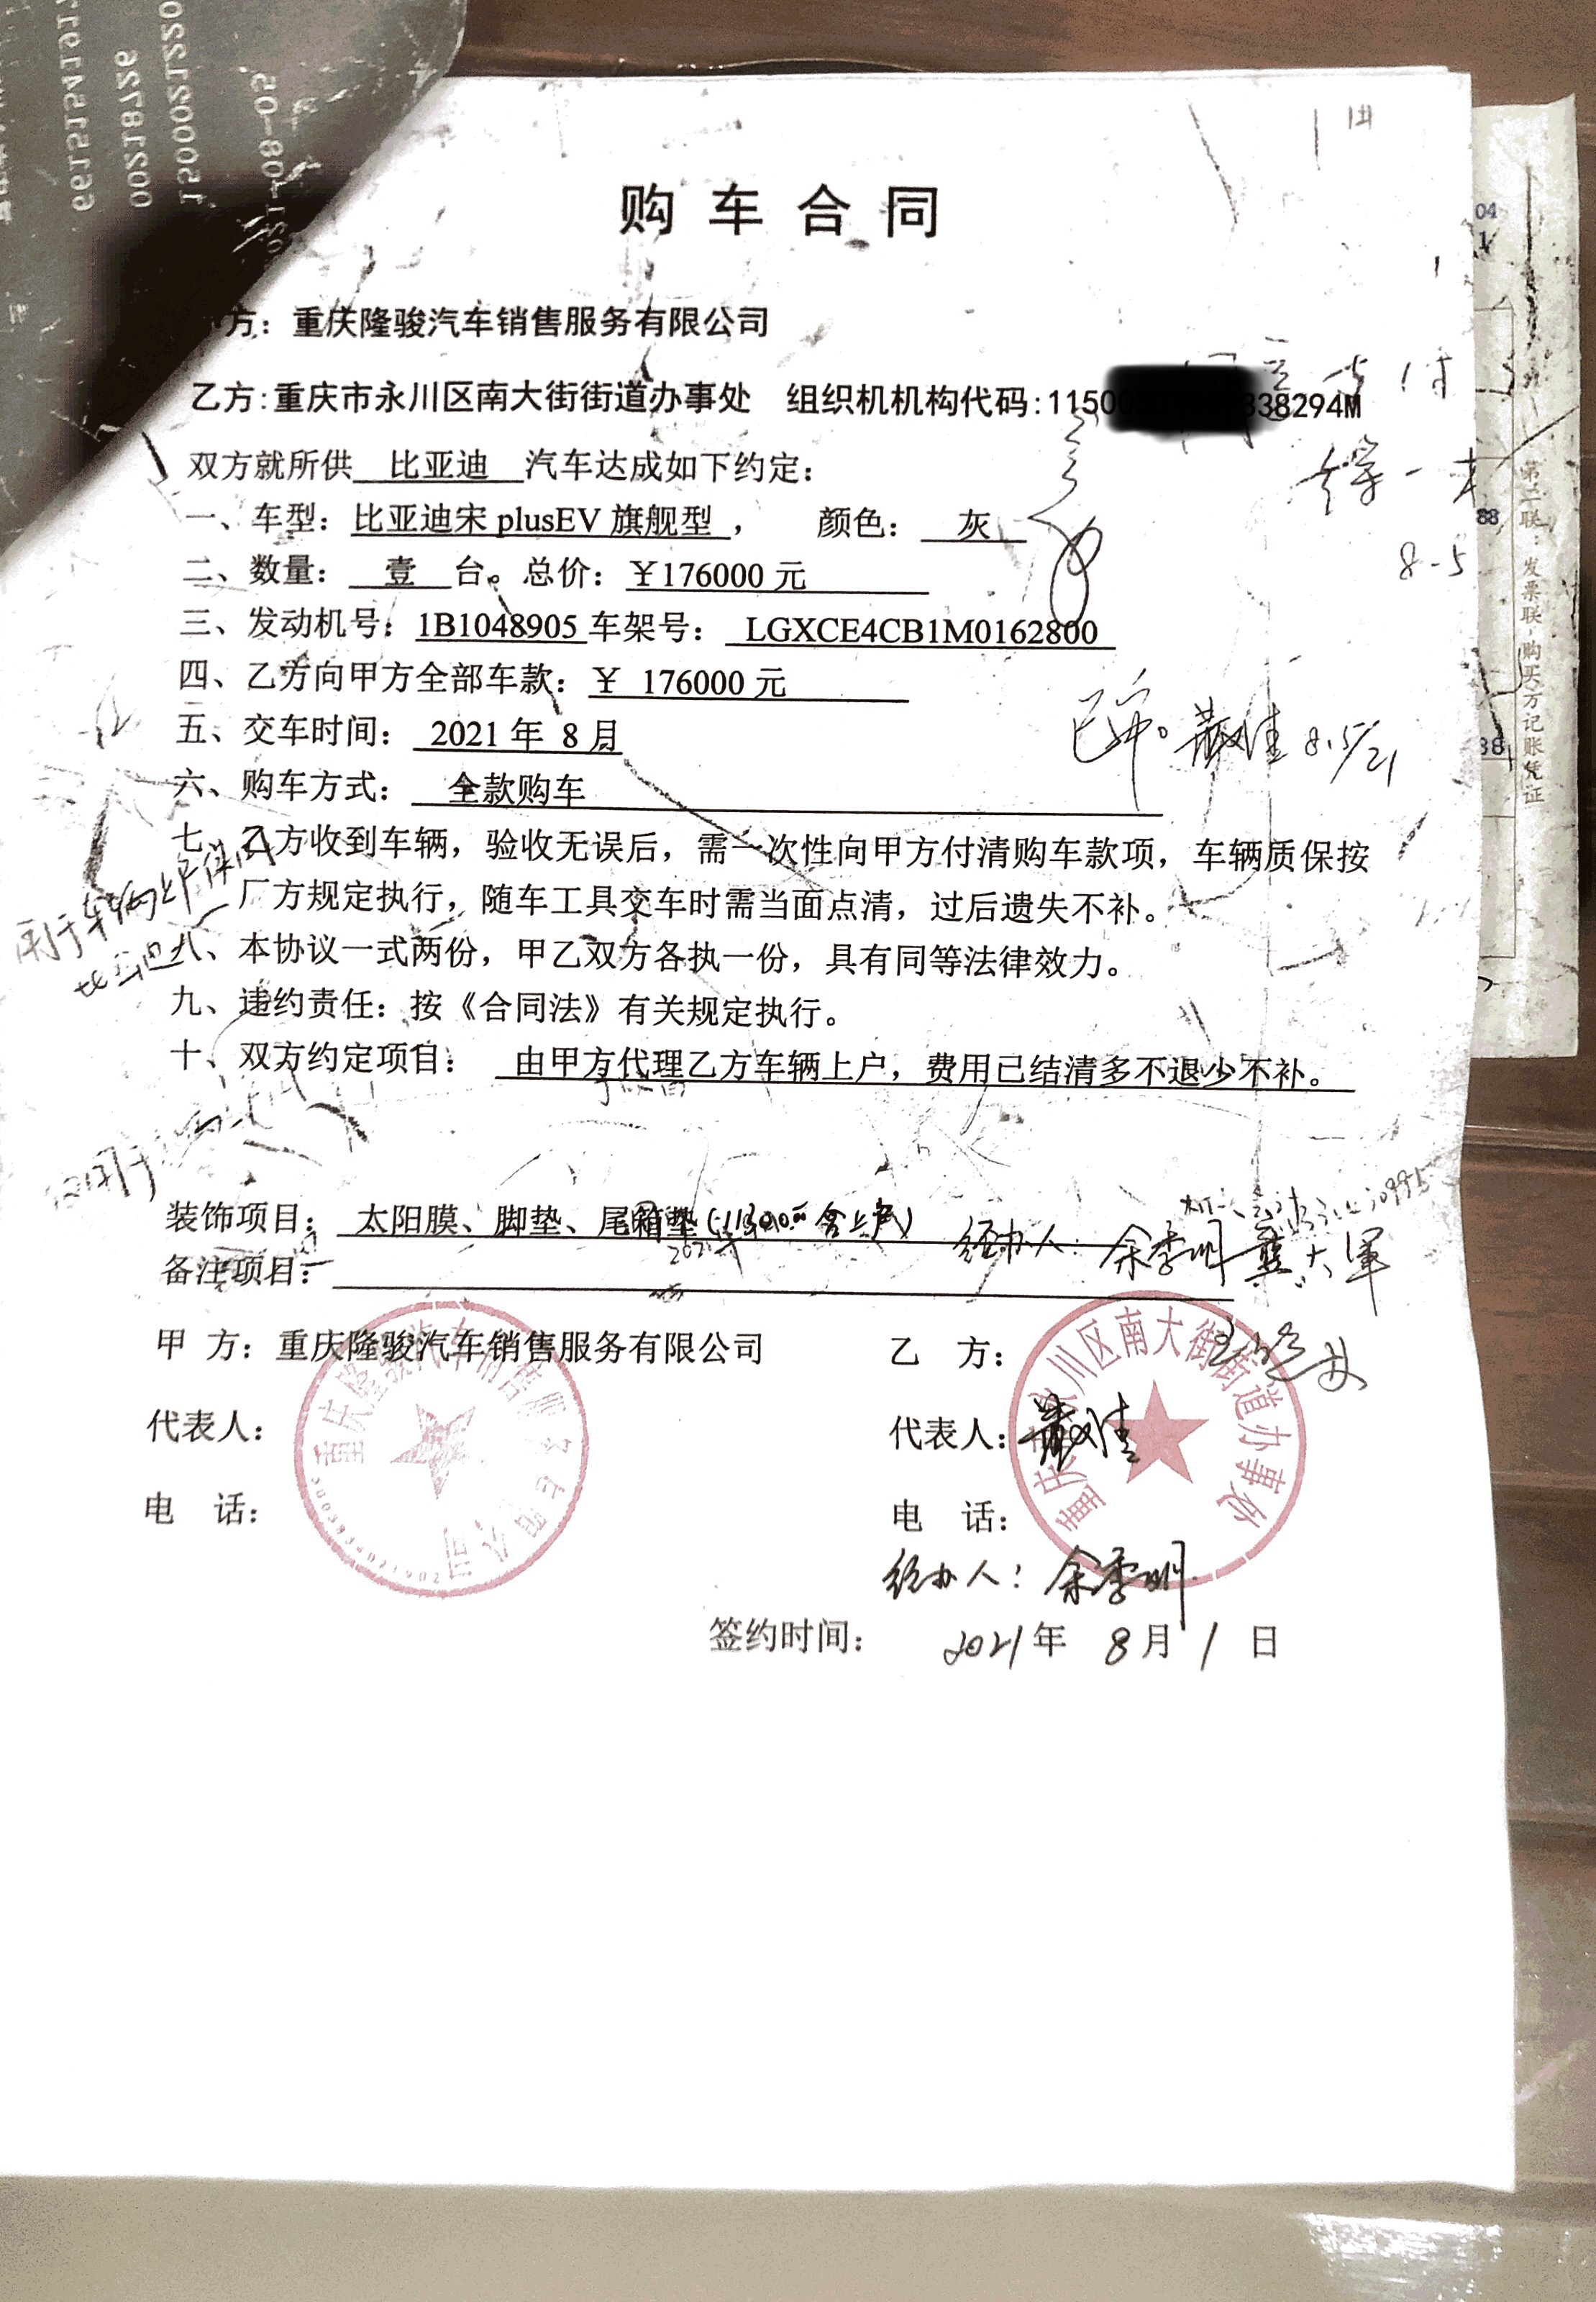 购车合同
方：重庆隆骏汽车销售服务有限公司
乙方:重庆市永川区南大街街道办事处 组织机机构代码:1150038294M
双方就所供 比亚迪 汽车达成如下约定：
一、车型：比亚迪宋 plusEV 旗舰型， 颜色： 灰
二、数量： 壹 台。总价：￥176000 元
三、发动机号：1B1048905 车架号： LGXCE4CB1M0162800
四、乙方向甲方全部车款：￥ 176000 元
五、交车时间： 2021 年 8 月
六、购车方式： 全款购车
七、乙方收到车辆，验收无误后，需一次性向甲方付清购车款项，车辆质保按
厂方规定执行，随车工具交车时需当面点清，过后遗失不补。
八、本协议一式两份，甲乙双方各执一份，具有同等法律效力。
九、违约责任：按《合同法》有关规定执行。
十、双方约定项目： 由甲方代理乙方车辆上户，费用已结清多不退少不补。
装饰项目： 太阳膜、脚垫、尾箱垫 经办人：余季明
备注项目：
甲 方：重庆隆骏汽车销售服务有限公司
乙 方：
代表人：
代表人：
电 话：
电 话：
经办人：余季明
签约时间： 2021年 8月 1 日
8.5/21
8-5
第二联：发票联，购买方记账凭证
88
04